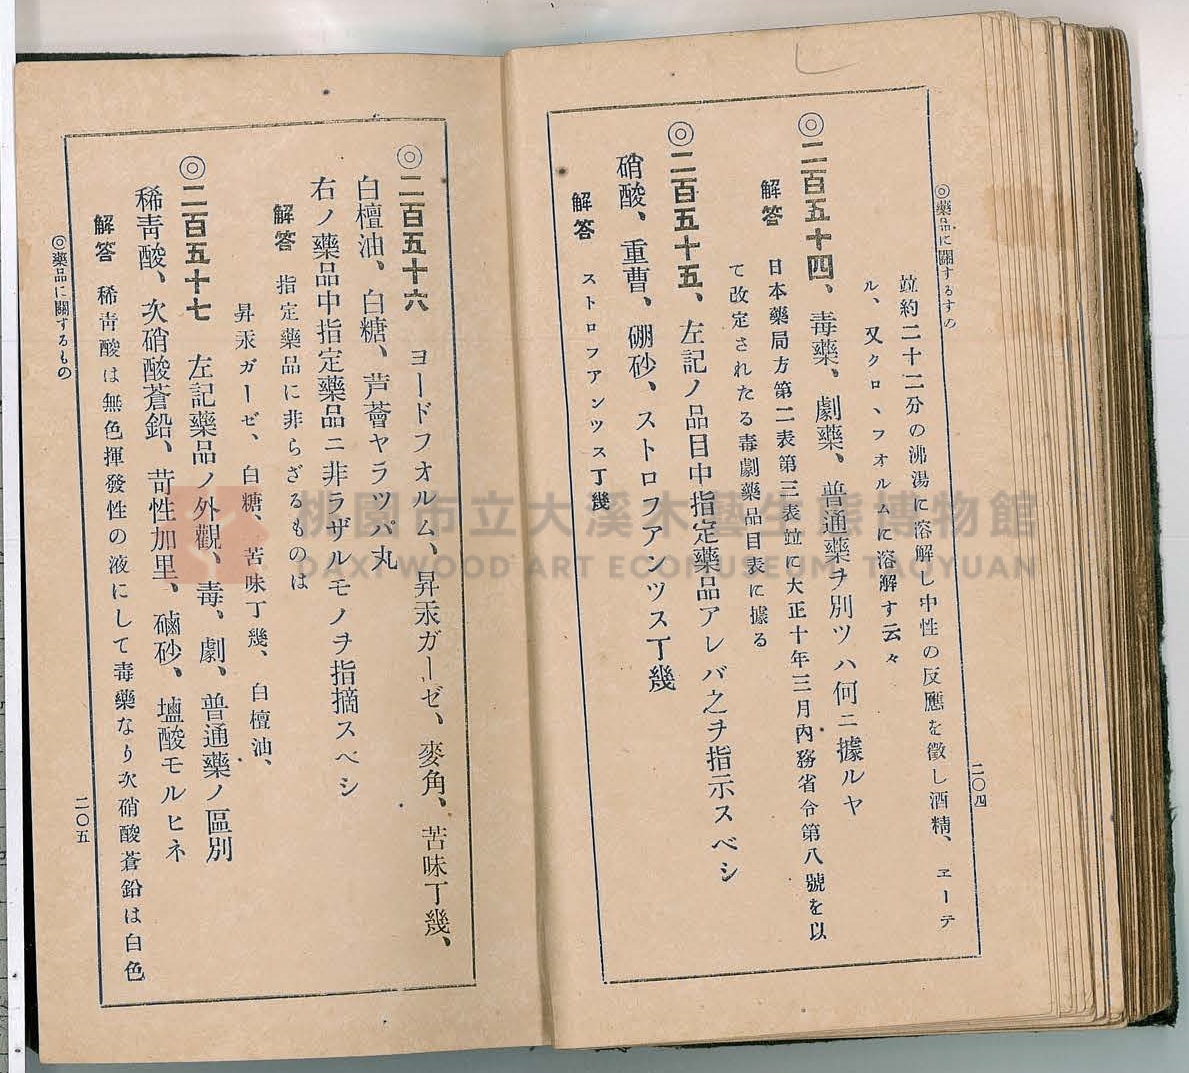 ◎藥品に關するすの
竝約二十二分の沸湯に溶解し中性の反應を徵し酒精、ヱーテ
ル、又クロ、フオルムに溶解す云々
◎二百五十四、毒藥、劇藥、普通藥ヲ別ツハ何ニ據ルヤ
解答 日本藥局方第二表第三表竝に大正十年三月內務省令第八號を以
て改定されたる毒劇藥品目表に據る
◎二百五十五、左記ノ品目中指定藥品アレバ之ヲ指示スベシ
硝酸、重曹、硼砂、ストロフアンツス丁幾
解答 ストロフアンツス丁幾
二〇四
◎二百五十六 ヨードフオルム、昇汞ガーゼ、麥角、苦味丁幾、
白檀油、白糖、芦薈ヤラツパ丸
右ノ藥品中指定藥品ニ非ラザルモノヲ指摘スベシ
解答 指定藥品に非らざるものは
昇汞ガーゼ、白糖、苦味丁幾、白檀油、
◎二百五十七 左記藥品ノ外觀、毒、劇、普通藥ノ區別
稀靑酸、次硝酸蒼鉛、苛性加里、磠砂、塩酸モルヒネ
解答 稀靑酸は無色揮發性の液にして毒藥なり次硝酸蒼鉛は白色
◎藥品に關するもの
二〇五
桃園市立大溪木藝生態博物館
DAXI WOOD ART ECOMUSEUM, TAOYUAN